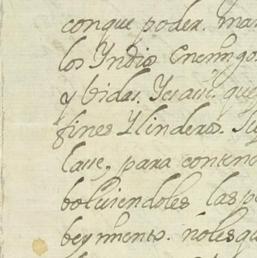 con que poder. man
los Yndios Enemigos
y vidas. Yesaui. que
fines Y linderos. Su
laue, para contene
bolviendoles las pe
bey miento. noles qu